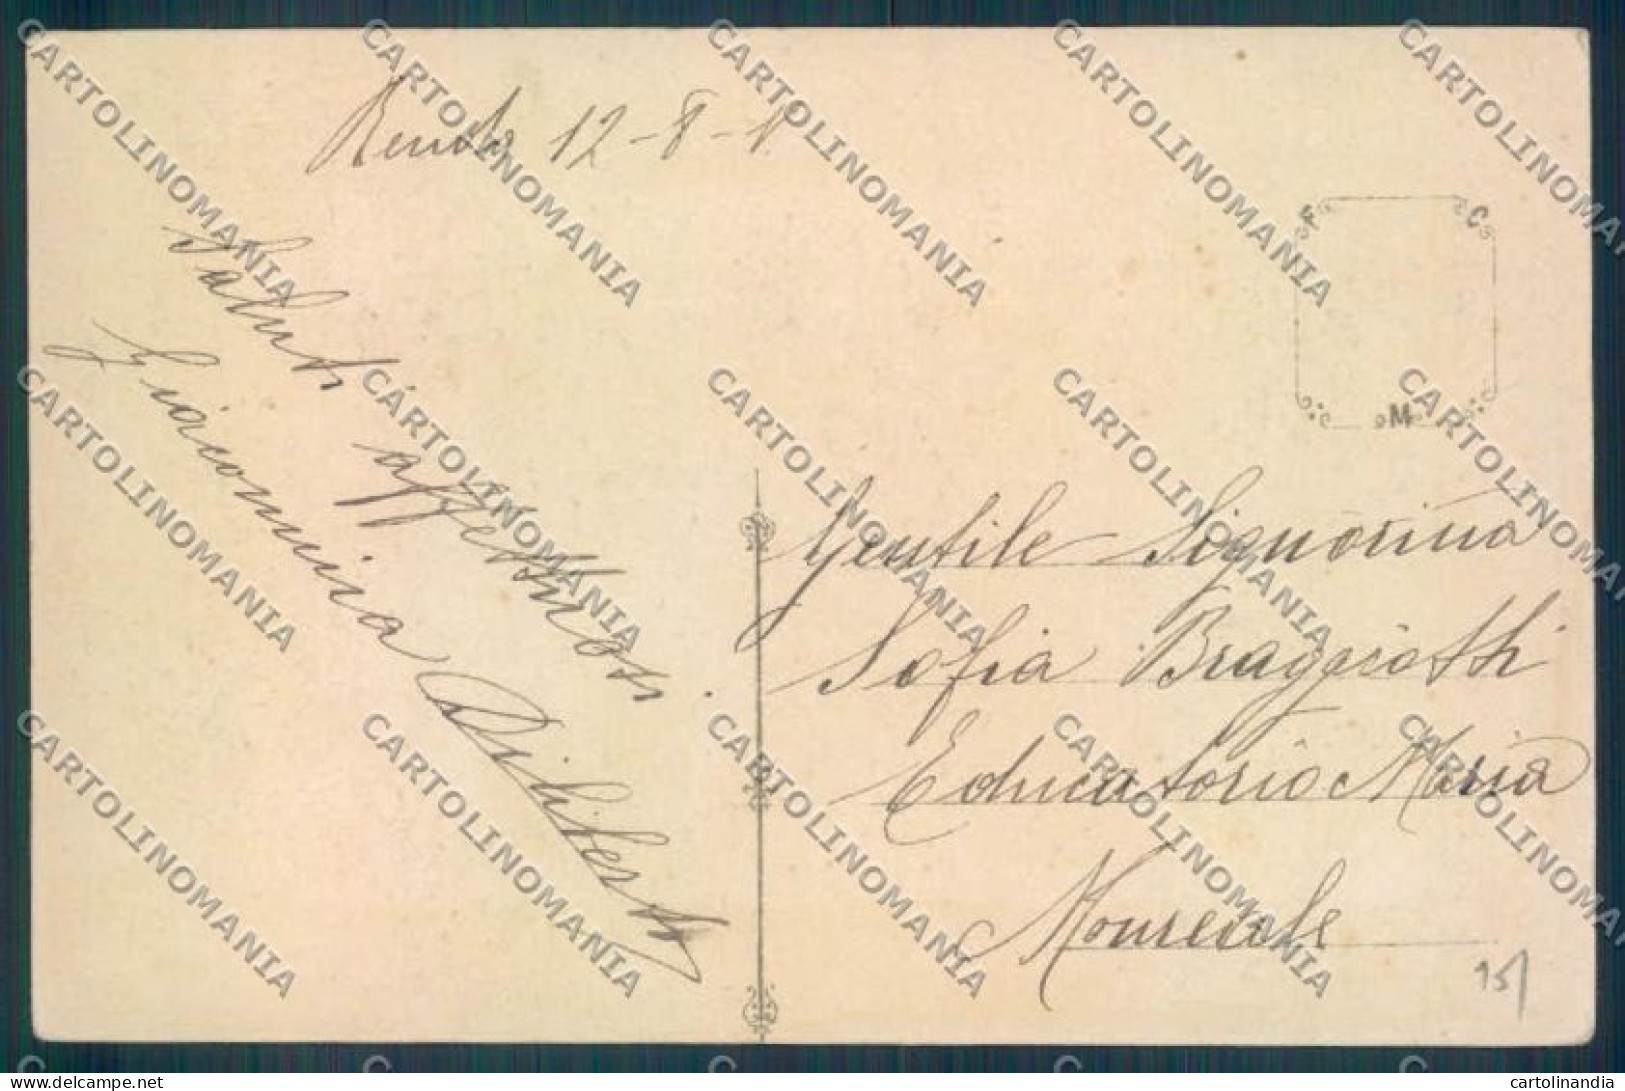 Renda 12-8-1
Saluti affettuosi
Giacomina Diliberto
F C
M
Gentile Signorina
Sofia Braggiotti
Educatorio Maria
Monreale
15/
CARTOLINOMANIA
www.delcampe.net
cartolinandia